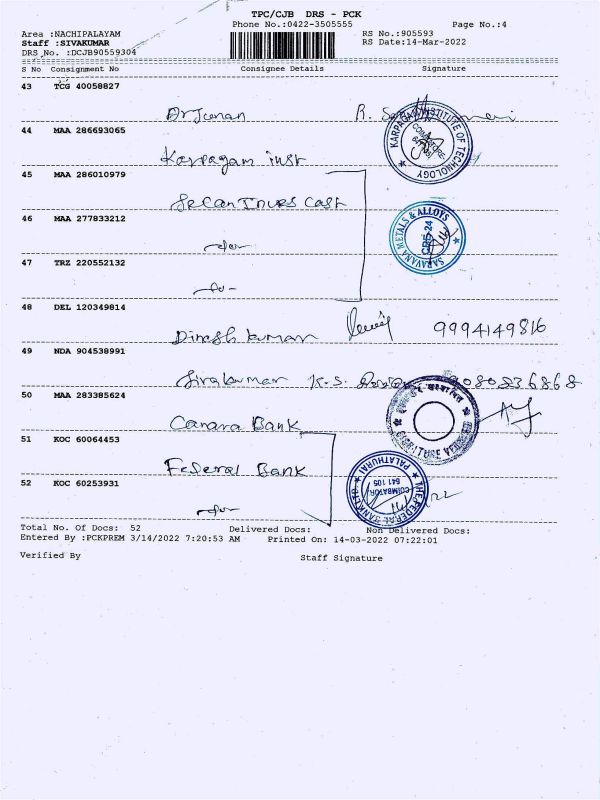 TPC/CJB DRS - PCK
Phone No.:0422-3505555 Page No.:4
Area :NACHIPALAYAM RS No.:905593
Staff :SIVAKUMAR RS Date:14-Mar-2022
DRS No. :DCJB90559304
S No Consignment No Consignee Details Signature
43 TCG 40058827
R.
44 MAA 286693065
Karpagam inst
KARPAGAM INSTITUTE OF TECHNOLOGY
COIMBATORE
45 MAA 286010979
46 MAA 277833212
SARAVANA METALS & ALLOYS
CBE-24
47 TRZ 220552132
48 DEL 120349814
Dinesh kumar 9994149816
49 NDA 904538991
Sivakumar K.S. 9080836868
50 MAA 283385624
Canara Bank
51 KOC 60064453
Federal Bank
THE FEDERAL BANK LTD
PALATHURAI
COIMBATORE
641 105
52 KOC 60253931
Total No. Of Docs: 52 Delivered Docs: Non Delivered Docs:
Entered By :PCKPREM 3/14/2022 7:20:53 AM Printed On: 14-03-2022 07:22:01
Verified By Staff Signature